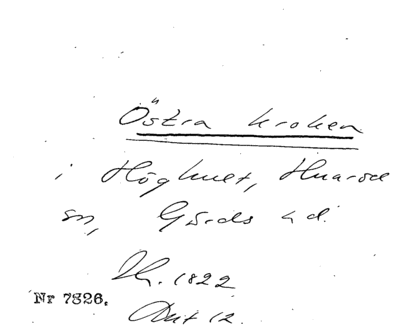 Östra kroken
i Höghult, Huaröd
sn, Gärds hd.
1822
Nr 7326.
Akt 12.